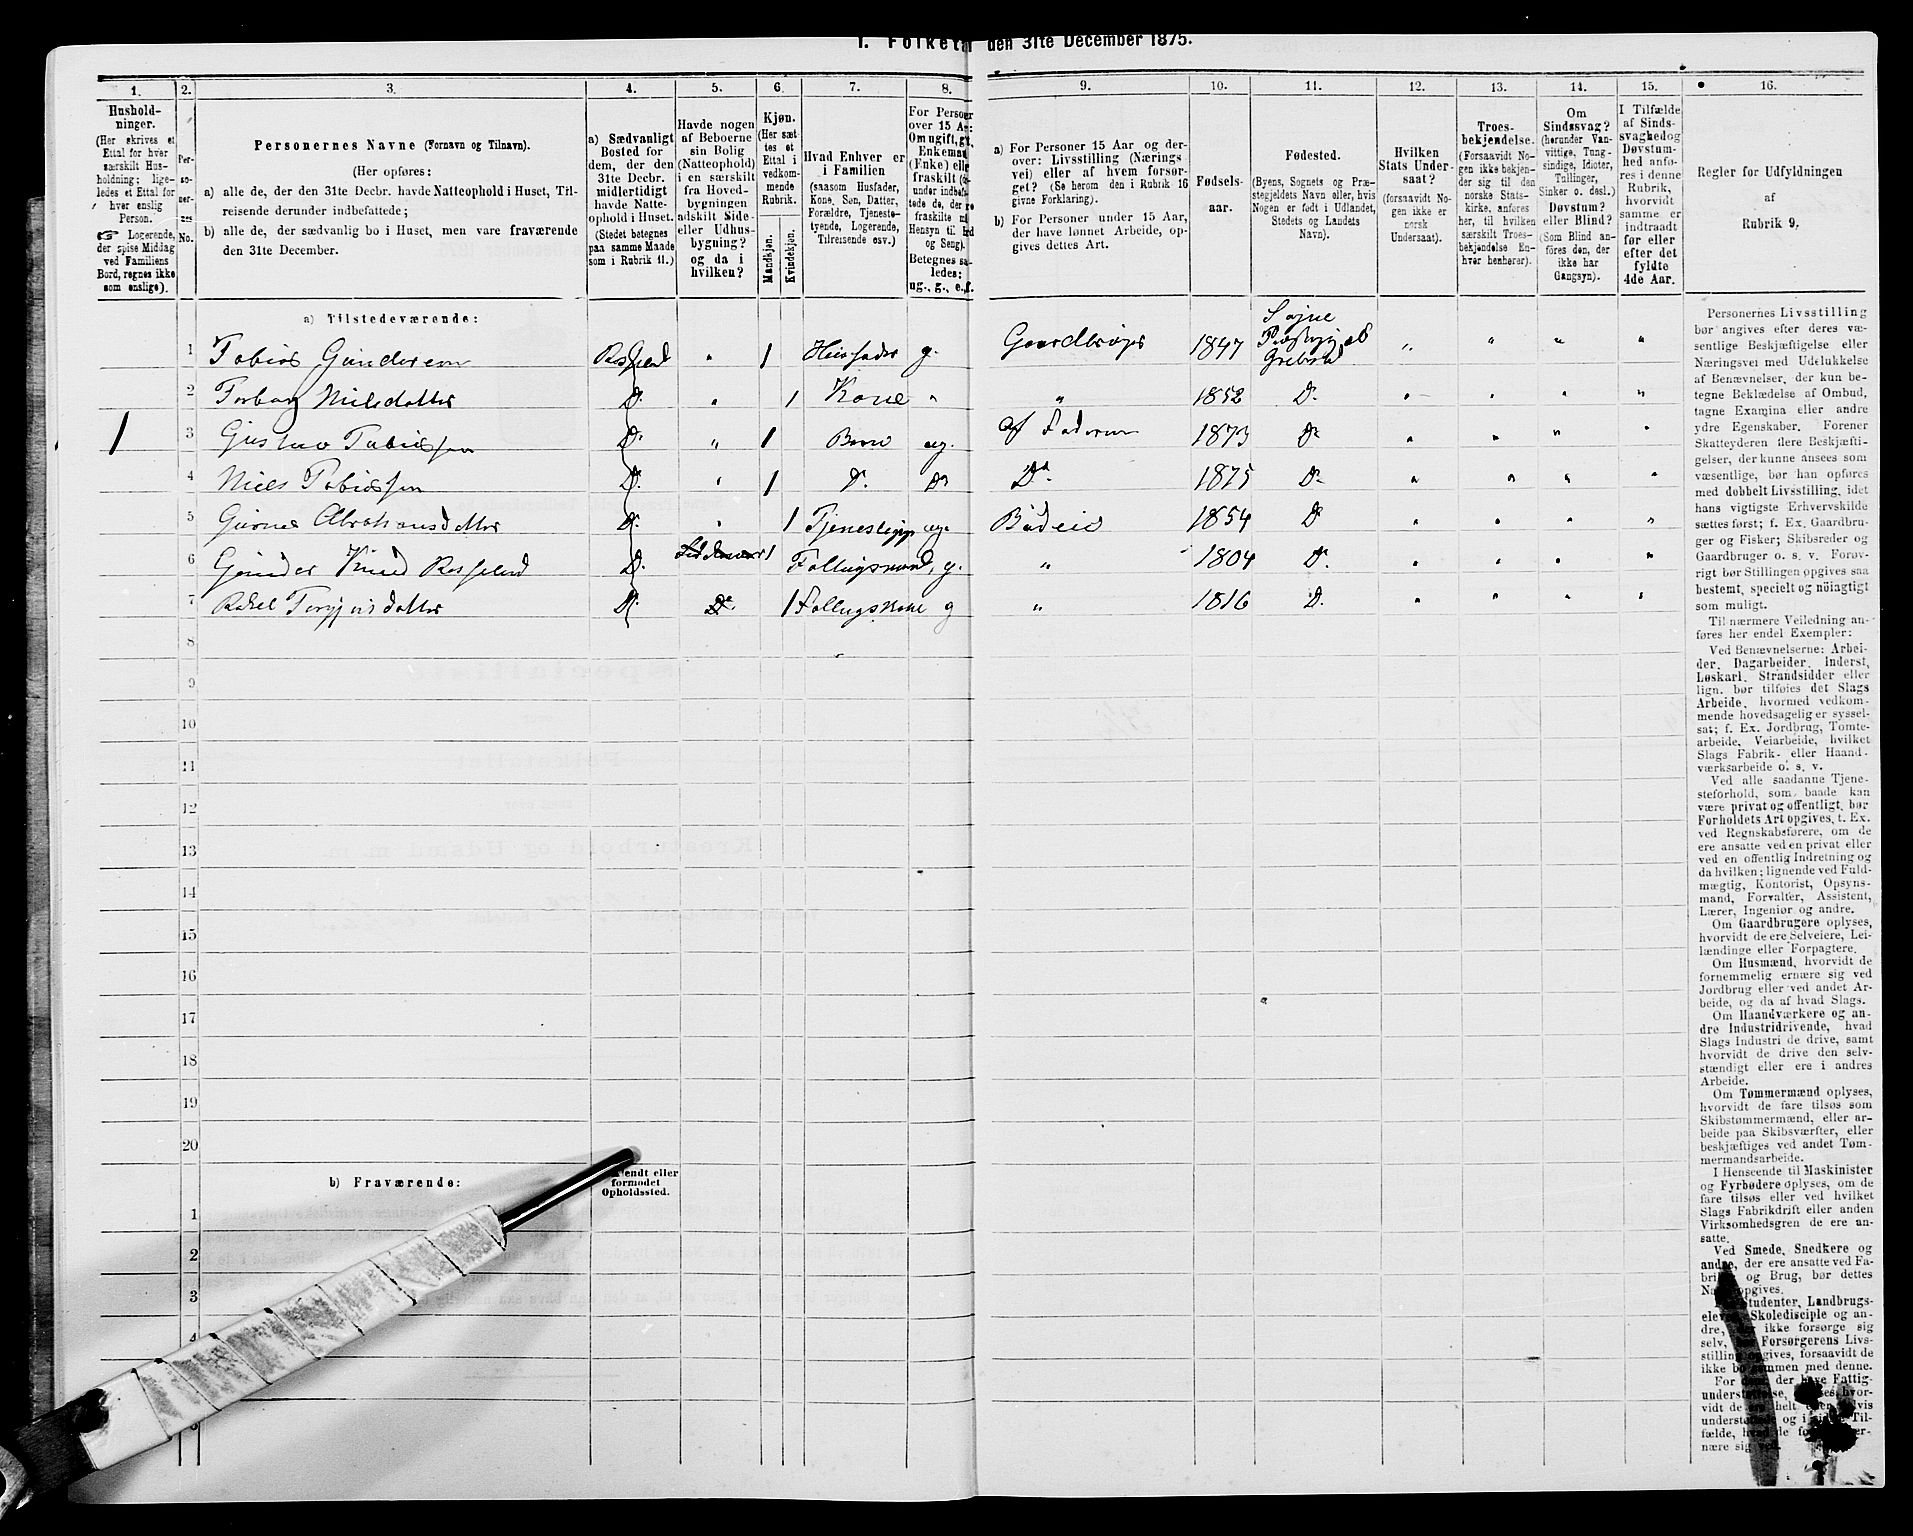 1. Folketal den 31te December 1875.
1. 2. 3. 4. 5. 6. 7. 8. 9. 10. 11. 12. 13. 14. 15. 16.
Hushold-
ninger.
(Her skrives et
Ettal for hver
særskilt Hus-
holdning; lige-
ledes et Ettal for
hver enslig
Person.
☞ Logerende,
der spise Middag
ved Familiens
Bord, regnes ikke
som enslige).
Per-
so-
ner-
nes
No.
Personernes Navne (Fornavn og Tilnavn).
(Her opføres:
a) alle de, der den 31te Decbr. havde Natteophold i Huset, Til-
reisende derunder indbefattede;
b) alle de, der sædvanlig bo i Huset, men vare fraværende
den 31te December.
a) Sædvanligt
Bosted for
dem, der den
31te Decbr.
midlertidigt
havde Natte-
ophold i Huset.
(Stedet betegnes
paa samme Maade
som i Rubrik 11.)
Havde nogen
af Beboerne
sin Bolig
(Natteophold)
i en særskilt
fra Hoved-
bygningen
adskilt Side-
eller Udhus-
bygning?
og da i
hvilken?
Kjøn.
(Her sæt-
tes et
Ettal i
vedkom-
mende
Rubrik.
Mandkjøn.
Kvindekjøn.
Hvad Enhver er
i Familien
(saasom Husfader,
Kone, Søn, Datter,
Forældre, Tjeneste-
tyende, Logerende,
Tilreisende osv.)
For Person
over 15 Aar:
Om ugift, gt,
Enkemand
(Enke) eller
fraskilt
Betegnes sa-
ledes:
ug., g., e., f.
a) For Personer 15 Aar og der-
over: Livsstilling (Nærings
vei) eller af hvem forsør-
get? (Se herom den i Rubrik 16
givne Forklaring).
b) For Personer under 15 Aar,
der have lønnet Arbeide, op-
gives dettes Art.
Fødsels-
aar.
Fødested.
(Byens, Sognets og Præ-
stegjeldets Navn eller, hvis
Nogen er født i Udlandet,
Stedets og Landets
Navn).
Hvilken
Stats Under-
saat?
(forsaavidt No-
gen ikke er
norsk
Undersaat).
Troes-
bekjendelse.
(Forsaavidt No-
gen ikke bekjen-
der sig til den
norske Stats-
kirke, anføres
her, til hvilken
særskilt Troes-
bekjendelse En-
hver henhører).
Om
Sindssvag?
(herunder Van-
vittige, Tung-
sindige, Idioter,
Tullinger,
Sinker o. desl.)
Døvstum?
eller Blind?
(Som Blind an-
føres den, der
ikke har
Gangsyn).
I Tilfælde
af Sinds-
svaghed og
Døvstum-
hed anfø-
res i denne
Rubrik,
hvorvidt
samme er
indtraadt
før eller
efter det
fyldte
4de Aar.
Regler for Udfyldningen
af
Rubrik 9.
a) Tilstedeværende:
1 Tobias Gundersen Røsseland " 1 Huusfader g. Gaardbruger 1847 Søgne Præstegjeld Grebstad " " " "
2 Torborg Nielsdatter D. " 1 Kone " " 1852 D. " " " "
1 3 Gustav Tobiassen D. " 1 Barn ug. af Faderen 1873 D. " " " "
4 Niels Tobiassen D. " 1 D. D. D. 1875 D. " " " "
5 Abrahamsdatter D. " 1 ug. 1854 D. " " " "
6 Gunder Knud Røsseland D. 1 g. " 1804 D. " " " "
7 Rakel Torgjersdatter D. D. 1 g " 1816 D. " " " "
8
9
10
11
12
13
14
15
16
17
18
19
20
b) Fraværende:
endt eller
formodet
Opholdssted.
1
2
3
4
Personernes Livsstilling
bør angives efter deres væ-
sentlige Beskjæftigelse eller
Næringsvei med Udelukkelse
af Benævnelser, der kun be-
tegne Beklædelse af Ombud,
tagne Examina eller andre
ydre Egenskaber. Forener
Skatteyderen flere Beskjæfti-
gelser, der kunne ansees som
væsentlige, bør han opføres
med dobbelt Livsstilling, idet
hans vigtigste Erhvervskilde
sættes først; f. Ex. Gaardbru-
ger og Fisker; Skibsreder og
Gaardbruger o. s. v. Forøv-
rigt bør Stillingen opgives saa
bestemt, specielt og nöiagtigt
som muligt.
Til nærmere Veiledning an-
føres her endel Exempler:
Ved Benævnelserne: Arbei-
der, Dagarbeider, Inderst,
Løskarl, Strandsidder eller
lign. bør tilføies det Slags
Arbeide, hvormed vedkom-
mende hovedsagelig er syssel-
sat; f. Ex. Jordbrug, Tomte-
arbeide, Veiarbeide, hvilket
Slags Fabrik- eller Haand-
værksarbeide o. s. v.
Ved alle saadanne Tjene-
steforhold, som baade kan
være privat og offentligt, bør
Forholdets Art opgives, t. Ex.
ved Regnskabsførere, om de
ere ansatte ved en privat eller
ved en offentlig Indretning og
da hvilken; lignende ved Fuld-
mægtig, Kontorist, Opsyns-
mand, Forvalter, Assistent,
Lærer, Ingeniør og andre.
Om Gaardbrugere oplyses,
hvorvidt de ere Selveiere, Lei-
lændinge eller Forpagtere.
Om Husmænd, hvorvidt de
fornemmelig ernære sig ved
Jordbrug eller ved andet Ar-
beide, og da af hvad Slags.
Om Haandværkere og an-
dre Industridrivende, hvad
Slags Industri de drive, samt
hvorvidt de drive den selv-
stændigt eller ere i andres
Arbeide.
Om Tømmermænd oplyses,
hvorvidt de fare tilsøs som
Skibstømmermænd, eller ar-
beide paa Skibsværfter, eller
beskjæftiges ved andet Tøm-
mermandsarbeide.
I Henseende til Maskinister
og Fyrbødere oplyses, om de
fare tilsøs eller ved hvilket
Slags Fabrikdrift eller anden
Virksomhedsgren de ere an-
satte.
Ved Smede, Snedkere og
andre, der ere ansatte ved Fa-
og Brug, bør dettes
opgives.
Studenter, Landbrugs-
elever, Skoledisciple og an-
dre, ikke forsørge sig
selv, Forsørgerens Livs-
stilling opgives, forsaavidt de
ikke bo sammen med denne.
For der have Fattig-
understøttelse, hvor-
vidt de helt eller
understøttede og i Til-
fælde, hvad de
nære sig ved.